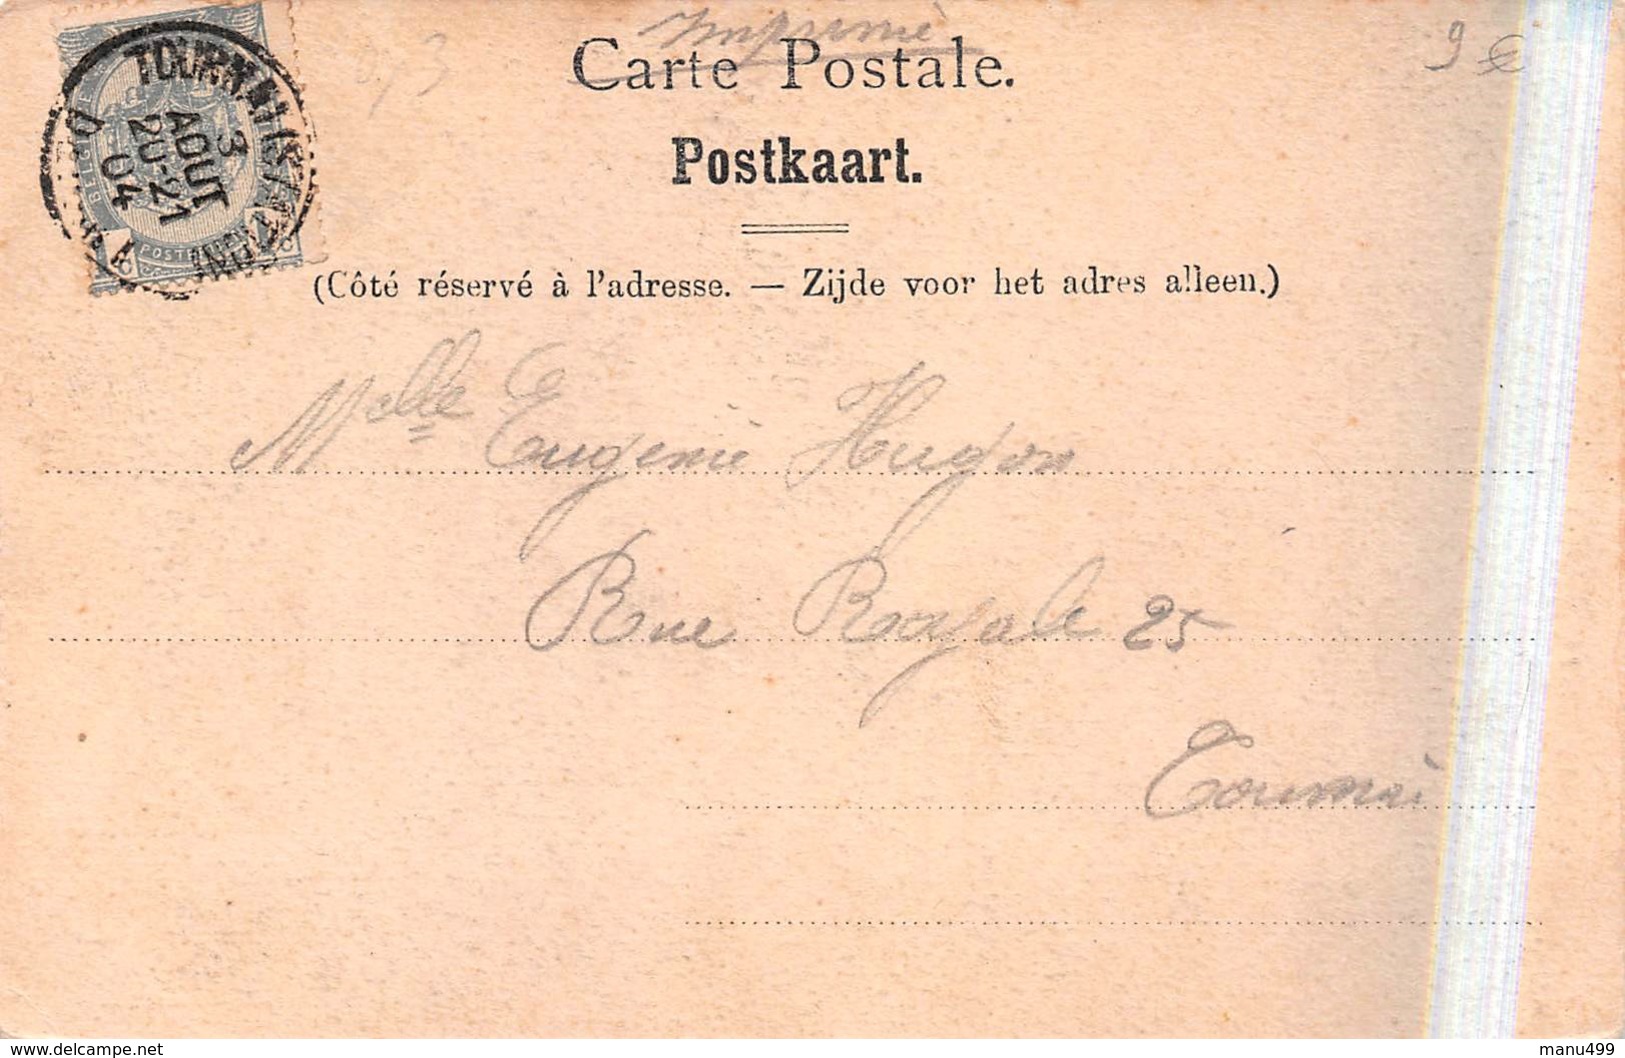 Imprimé
9 €
Carte Postale.
Postkaart.
TOURNAI (STATION)
3
AOUT
20-21
04
BELGIQUE
(Côté réservé à l'adresse. — Zijde voor het adres alleen.)
Mlle Eugenie Hugon
Rue Royale 25
Tournai
manu499